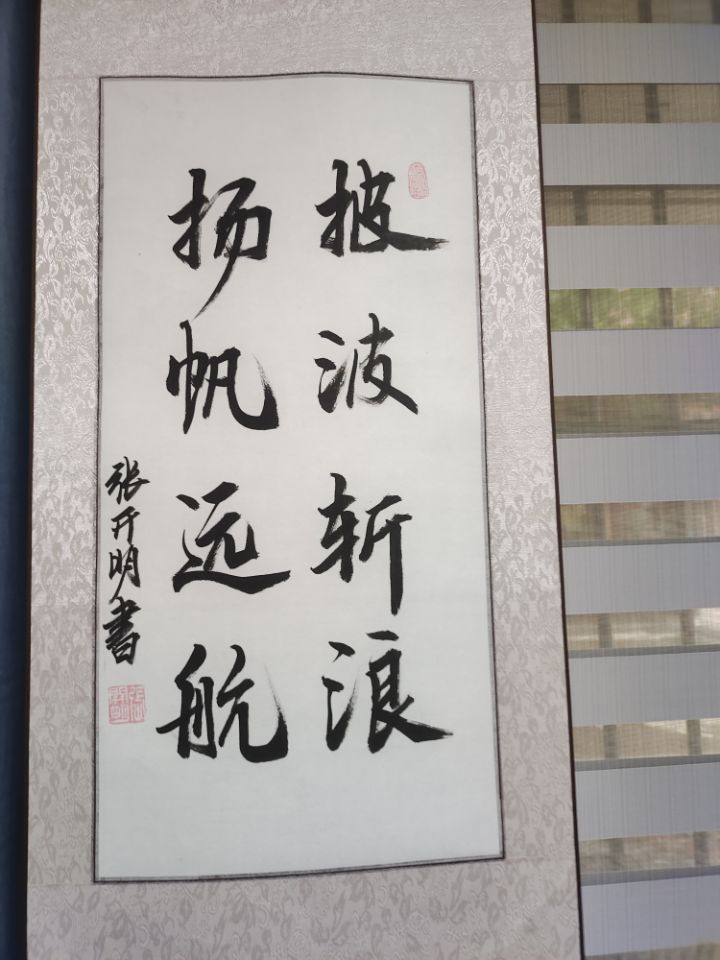 披波斩浪
扬帆远航
张开明书